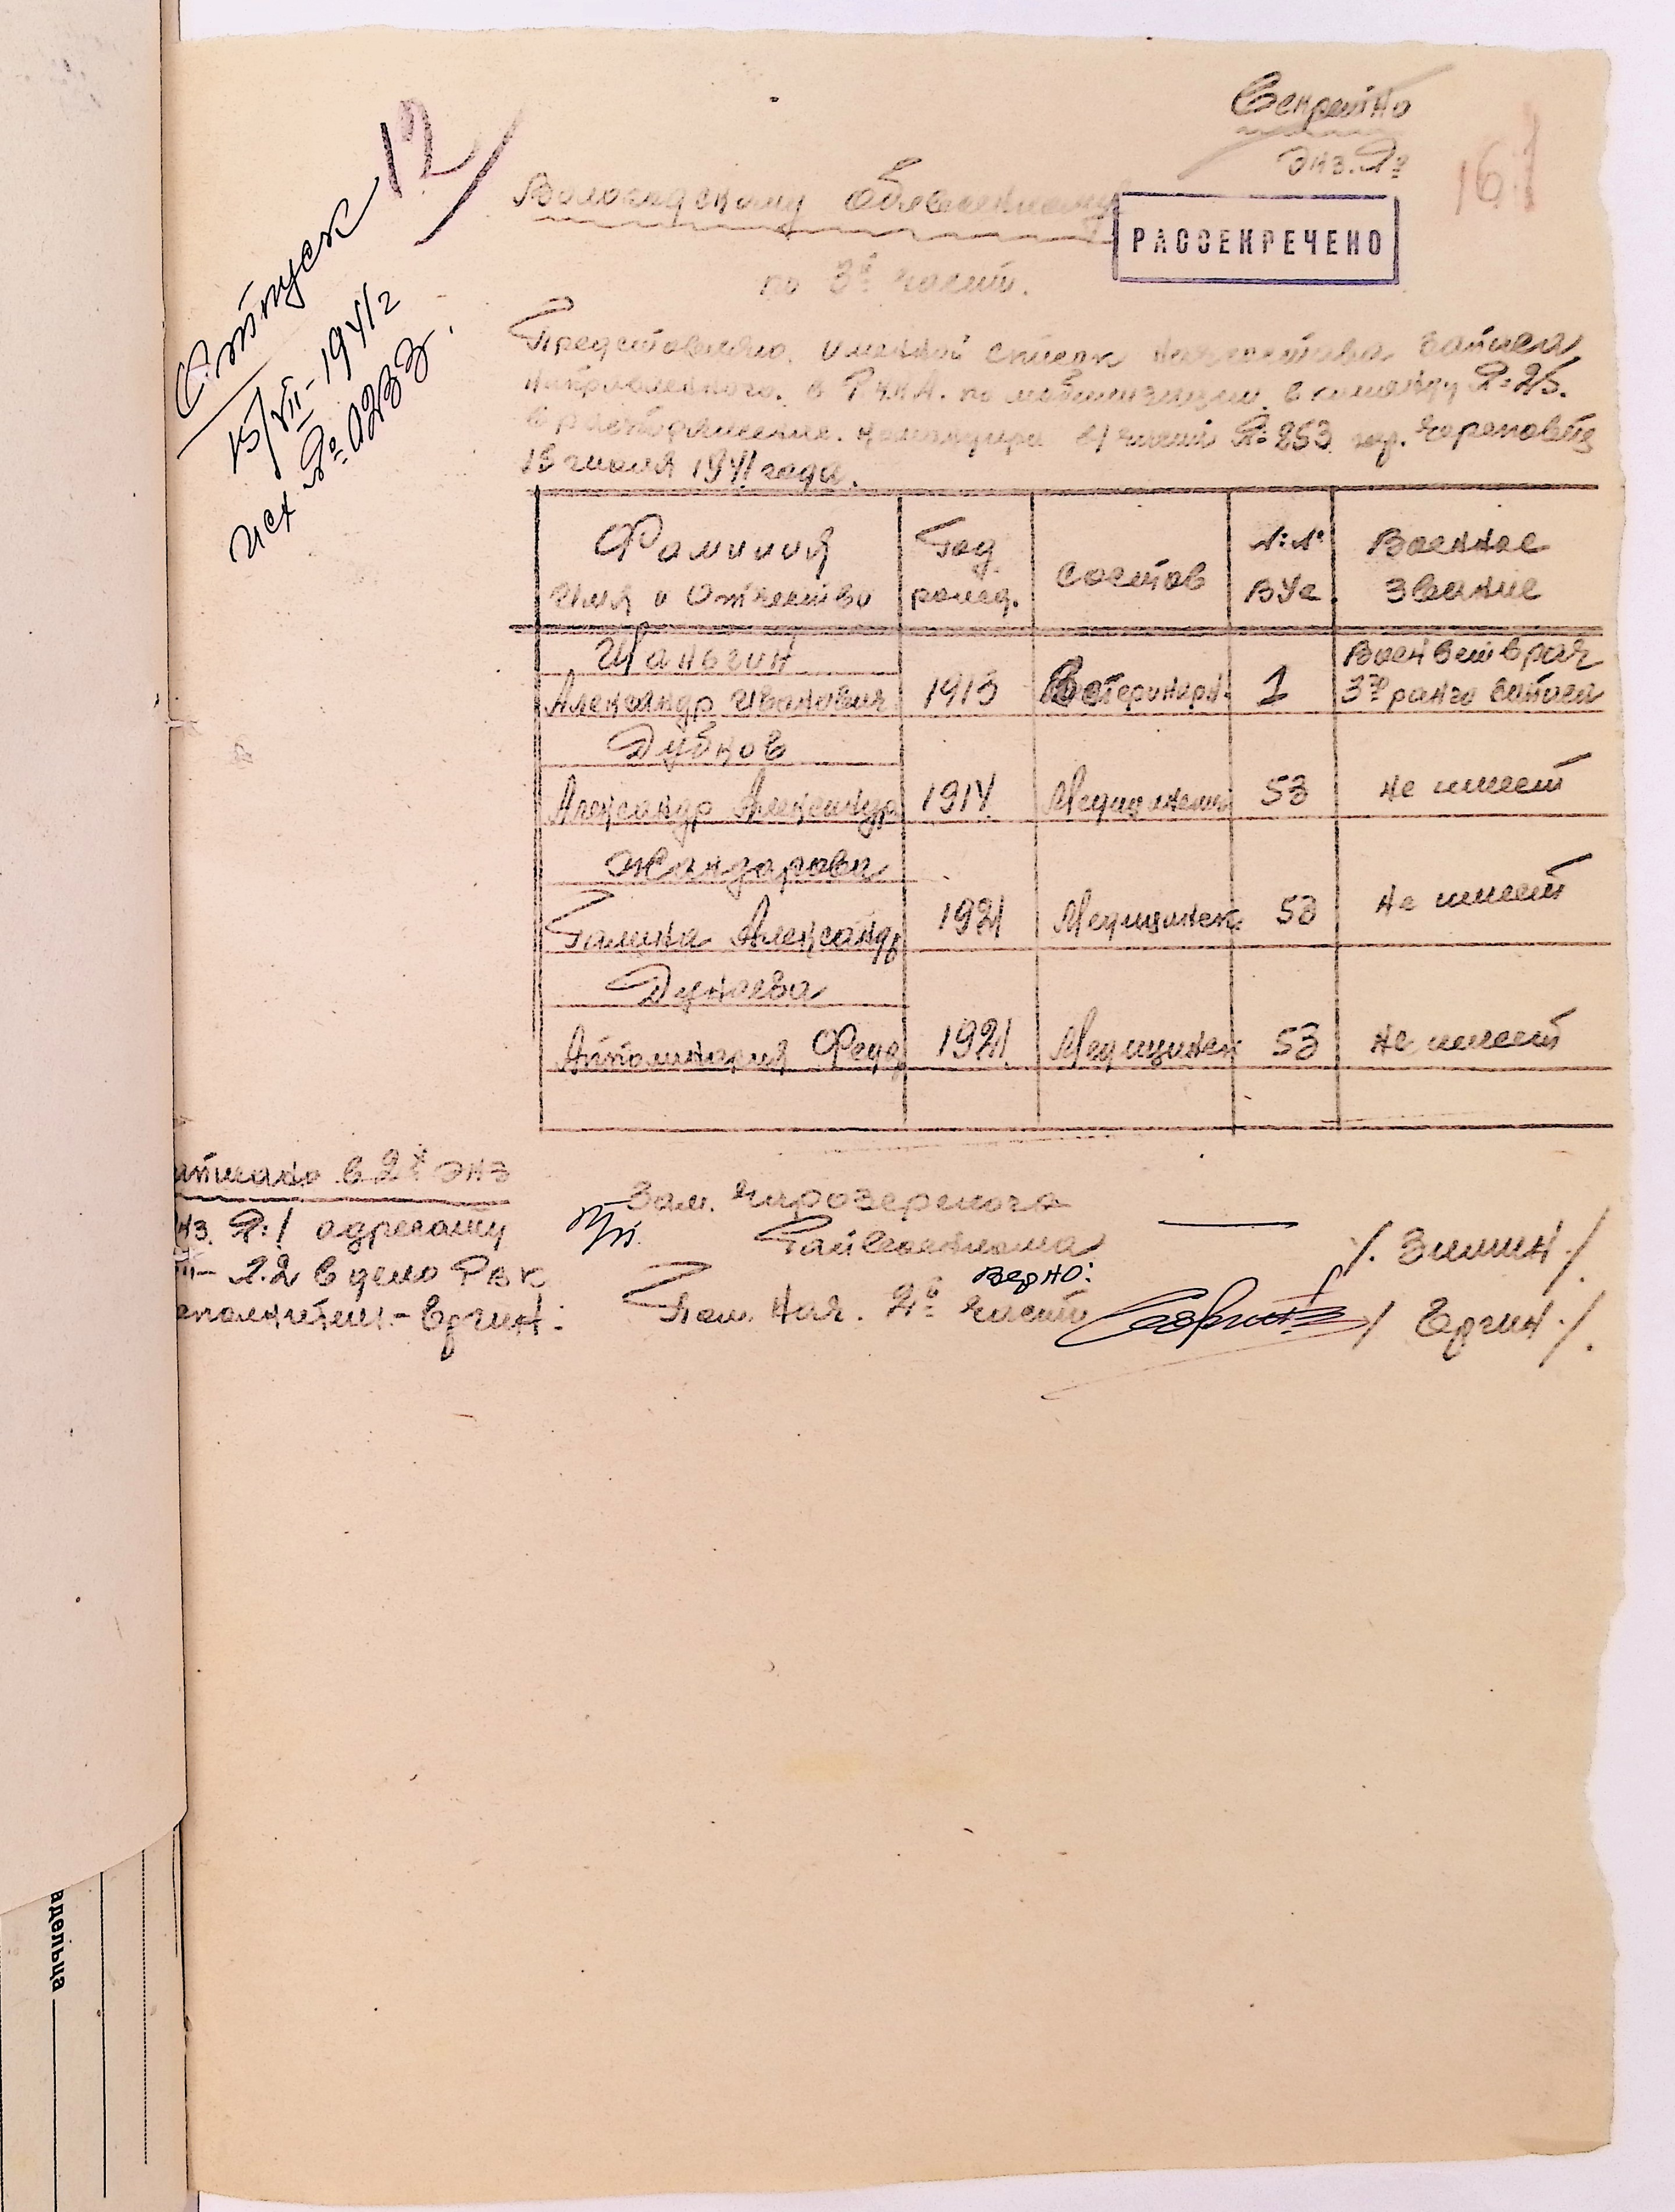 Секретно
Экз. №
161
12
Вологодскому Облвоенкому
РАССЕКРЕЧЕНО
по 3й части.
Отпуск
15/VII-1941г
исх №0233.
Представляю. именной список начсостава запаса
направленного. в Р.К.К.А. по мобилизации. в команду №:25.
в распоряжение. командира в/части №:253 гор. Череповец
15 июля 1941 года.
Фамилия Имя и Отчество
Год рожд.
Состав
№:№: ВУс
Военное звание
Александр Иванович 1913 Ветеринарн. 1 Военветврач 3го ранга запаса
Дубков
Александр Александр 1914 Медицинский 53 Не имеет
Жандарова
Галина Александр 1921 Медицинск 53 Не имеет
Дунаева
Апполинария Федр 1921 Медицинск 53 Не имеет
аписано в 2х экз
кз. №:1 адресату
-"- №.2 в дело РВК
сполнител:- Ергин:
Зам. Чарозерского
Райвоенкома
/. Зимин./
п/п.
Верно:
Пом. Нач. 2й части
/ Ергин./
адельца